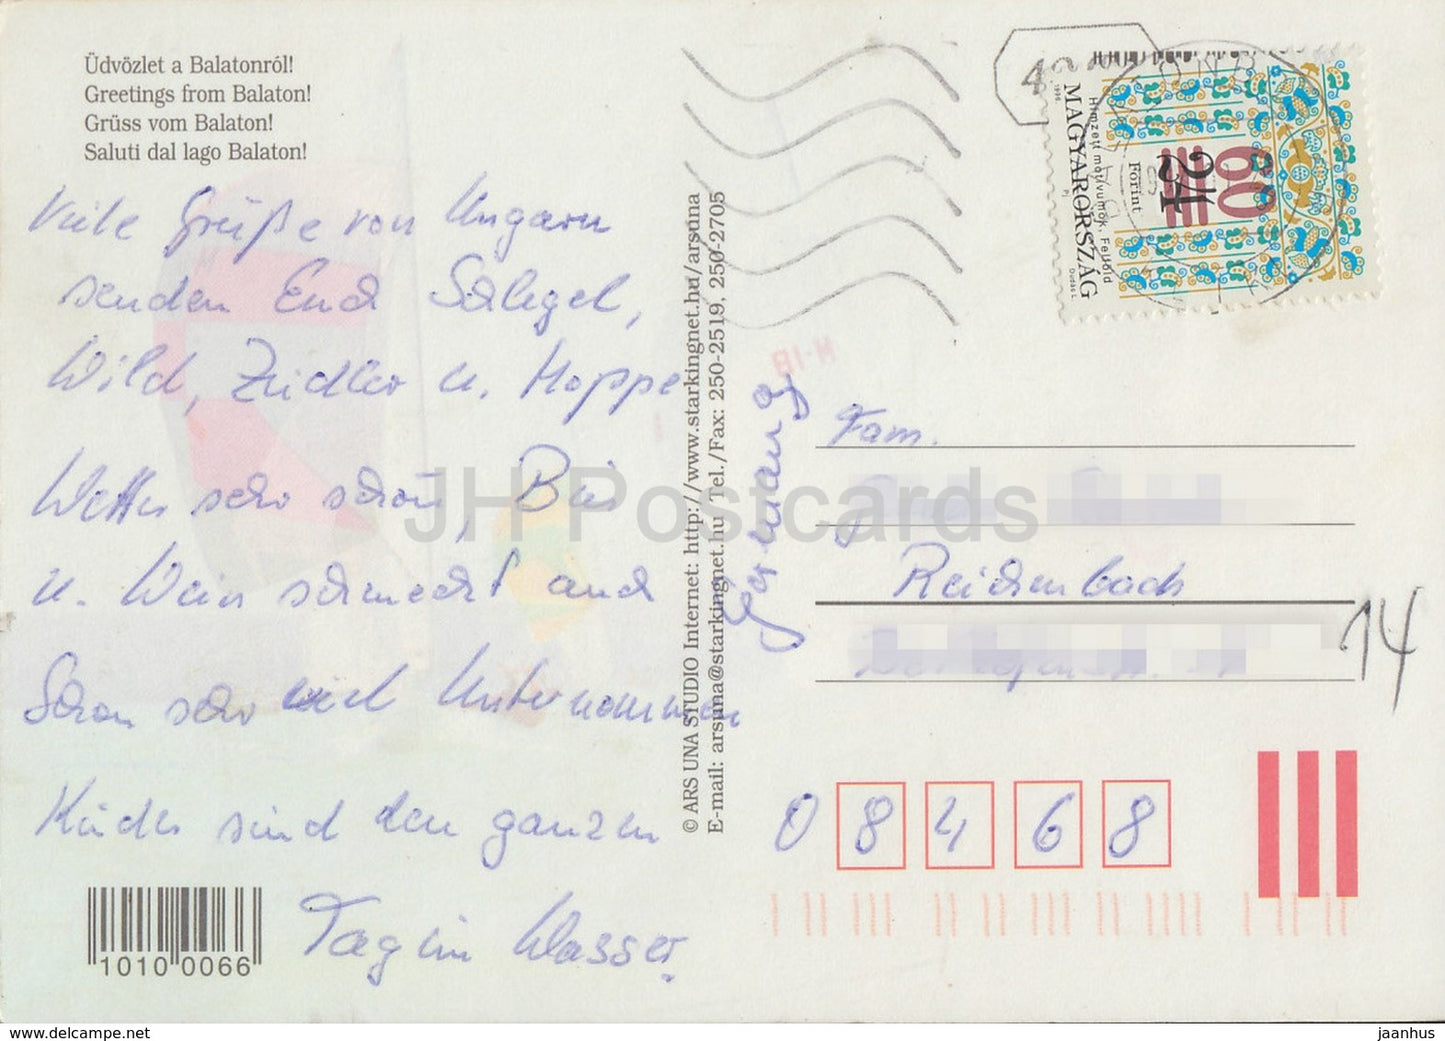 Üdvözlet a Balatonról!
Greetings from Balaton!
Grüss vom Balaton!
Saluti dal lago Balaton!
Viele Grüße von Ungarn
senden Euch Schlegel,
Wild, Zeidler u. Hoppe
Wetter sehr schön, Bier
u. Wein schmeckt auch
Schon sehr viel Unternommen
Kinder sind den ganzen
Tag im Wasser.
10100066
© ARS UNA STUDIO Internet: http://www.starkingnet.hu/arsuna
E-mail: arsuna@starkingnet.hu Tel./Fax: 250-2519, 250-2705
Germany
MAGYARORSZÁG
1996
Hímzett motívumok, Felföld
Dudás L.
Forint
24
60
Fam.
Reichenbach
14
08468
JH Postcards
www.delcampe.net
jaanhus